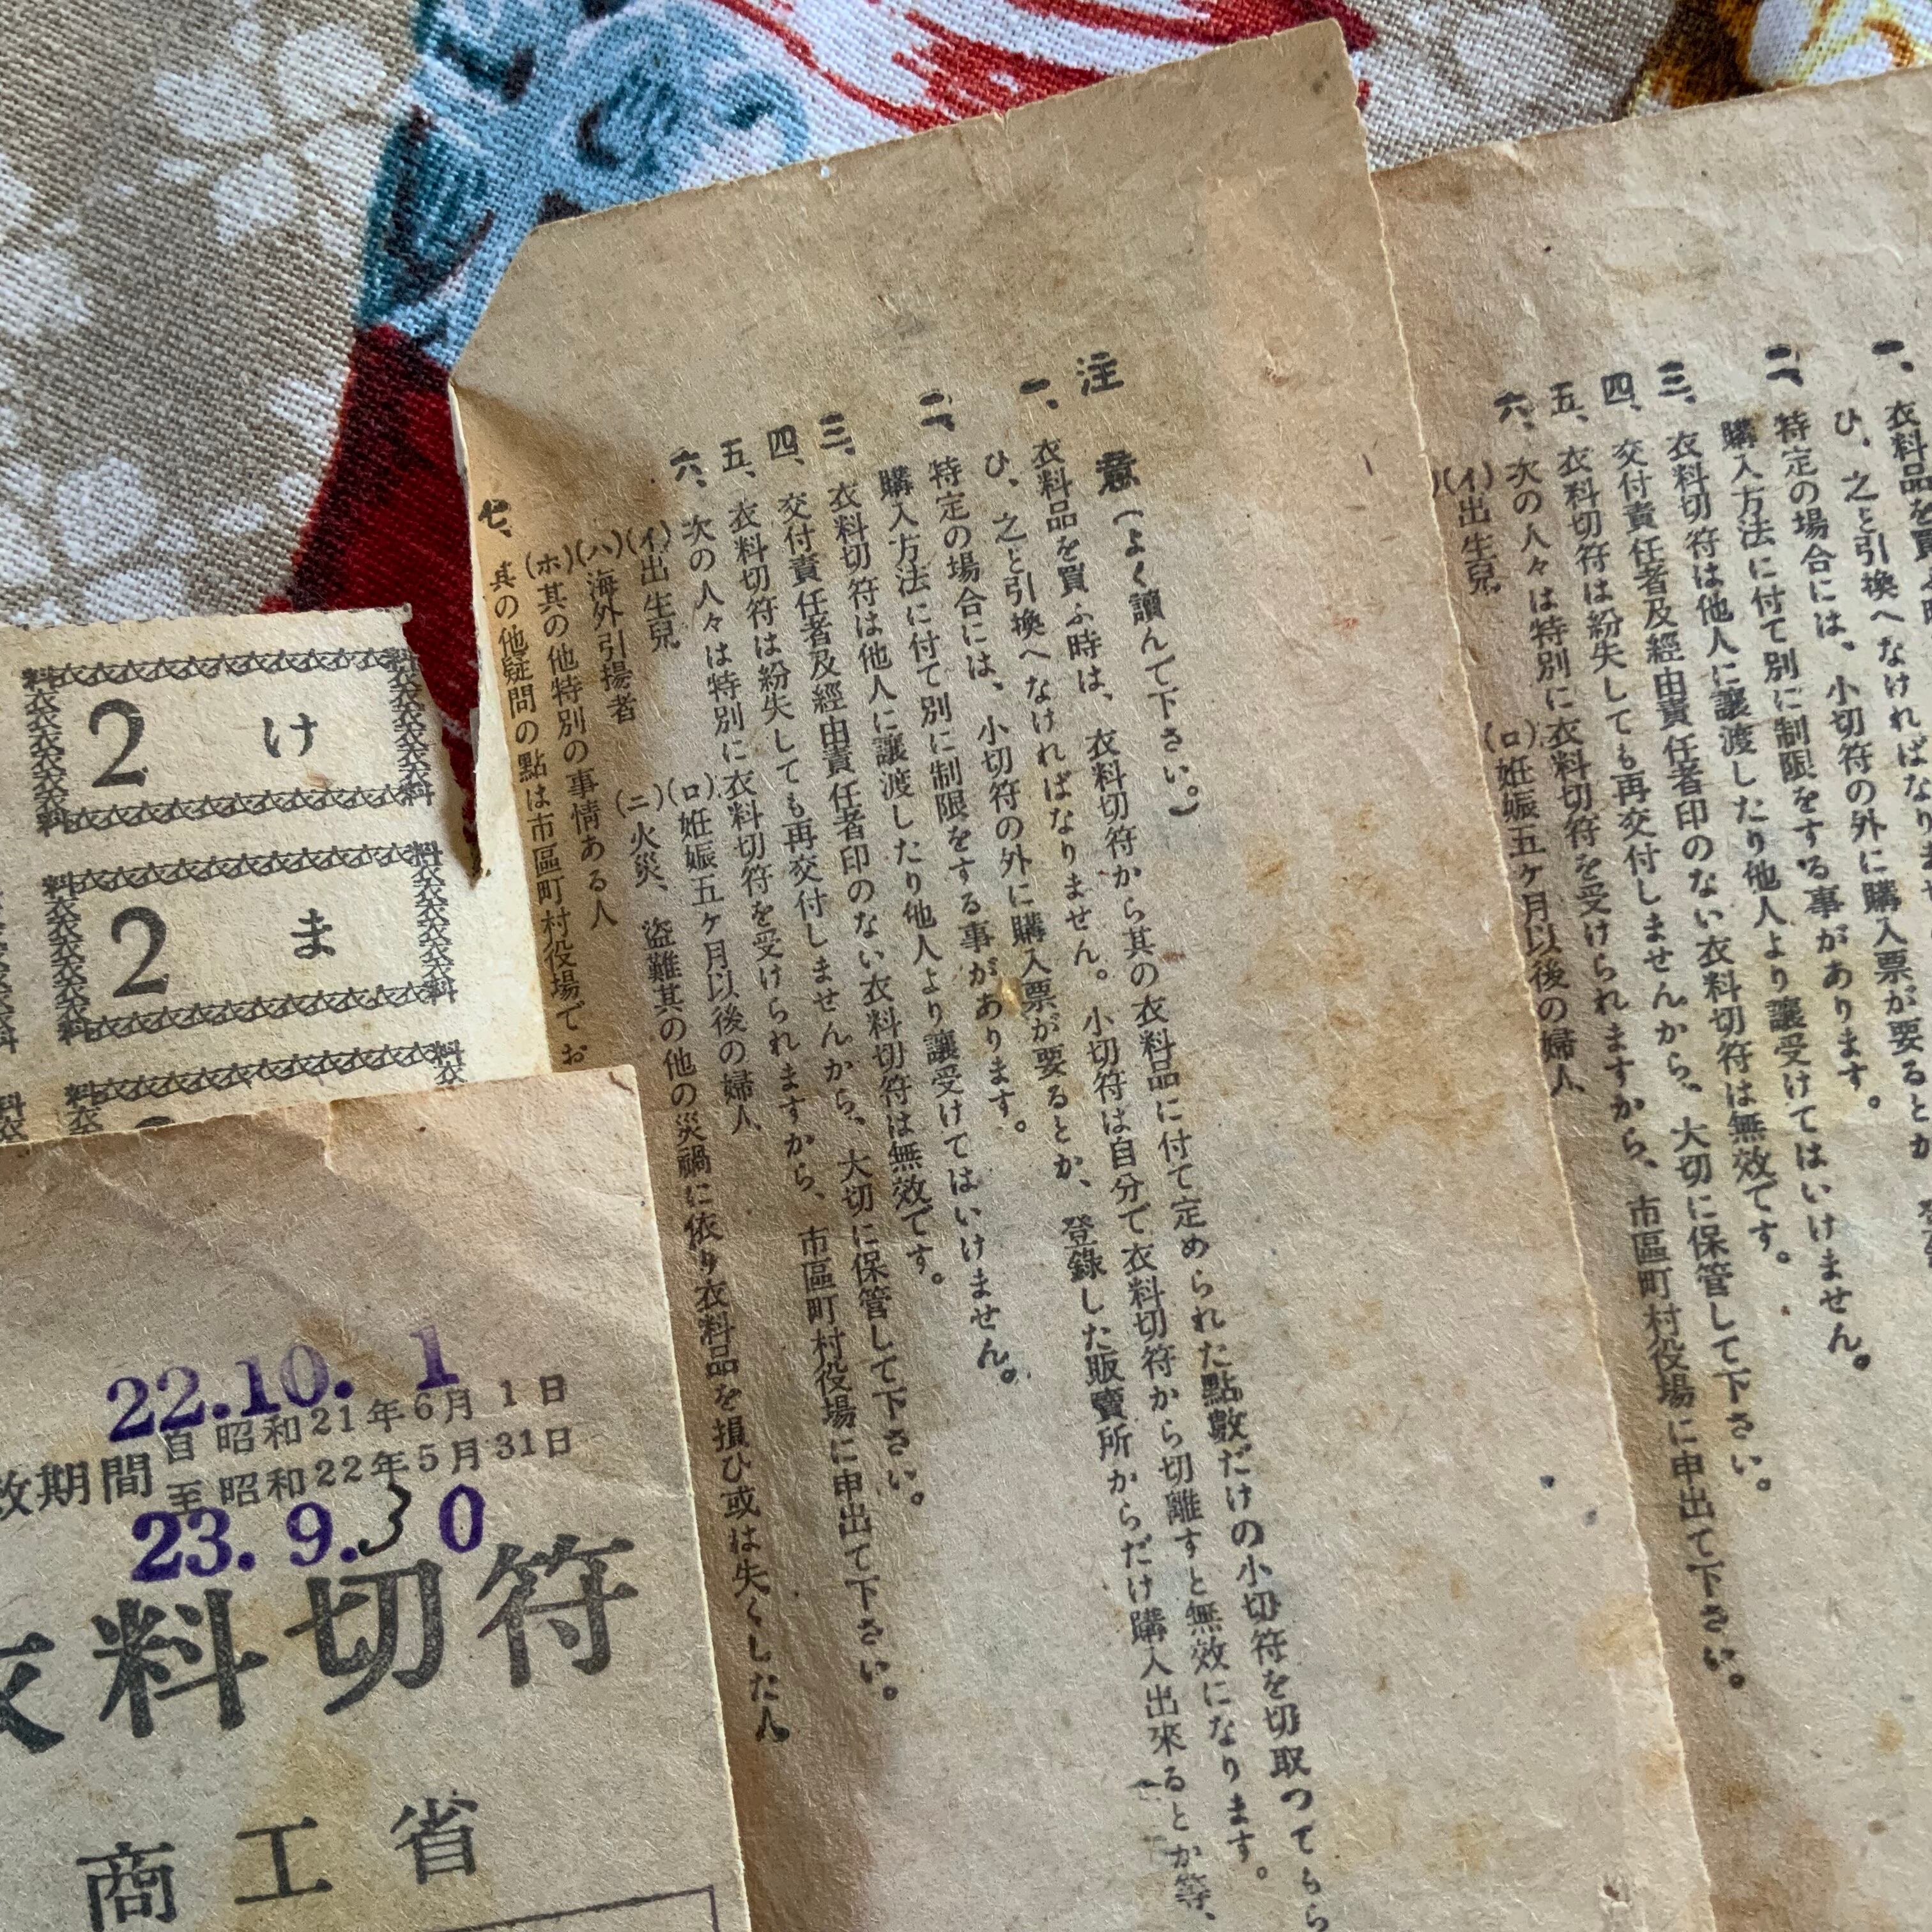 注意（よく讀んで下さい。）
一、衣料品を買ふ時は、衣料切符から其の衣料品に付て定められた點數だけの小切符を切取つてもら
ひ、之と引換へなければなりません。小切符は自分で衣料切符から切離すと無效になります。
二、特定の場合には、小切符の外に購入票が要るとか、登錄した販賣所からだけ購入出來るとか等、
購入方法に付て別に制限をする事があります。
三、衣料切符は他人に讓渡したり他人より讓受けてはいけません。
四、交付責任者及經由責任者印のない衣料切符は無效です。
五、衣料切符は紛失しても再交付しませんから、大切に保管して下さい。
六、次の人々は特別に衣料切符を受けられますから、市區町村役場に申出て下さい。
(イ)出生兒 (ロ)姙娠五ヶ月以後の婦人
(ハ)海外引揚者 (ニ)火災、盜難其の他の災禍に依り衣料品を損ひ或は失くした人
(ホ)其の他特別の事情ある人
七、其の他疑問の點は市區町村役場でお
一、衣料品を買ふ時
ひ、之と引換へなければなりませ
二、特定の場合には、小切符の外に購入票が要るとか
購入方法に付て別に制限をする事があります。
三、衣料切符は他人に讓渡したり他人より讓受けてはいけません。
四、交付責任者及經由責任者印のない衣料切符は無效です。
五、衣料切符は紛失しても再交付しませんから、大切に保管して下さい。
六、次の人々は特別に衣料切符を受けられますから、市區町村役場に申出て下さい。
(イ)出生兒 (ロ)姙娠五ヶ月以後の婦人
2 け
2 ま
22.10. 1
效期間 自昭和21年6月1日
至昭和22年5月31日
23. 9.30
衣料切符
商工省